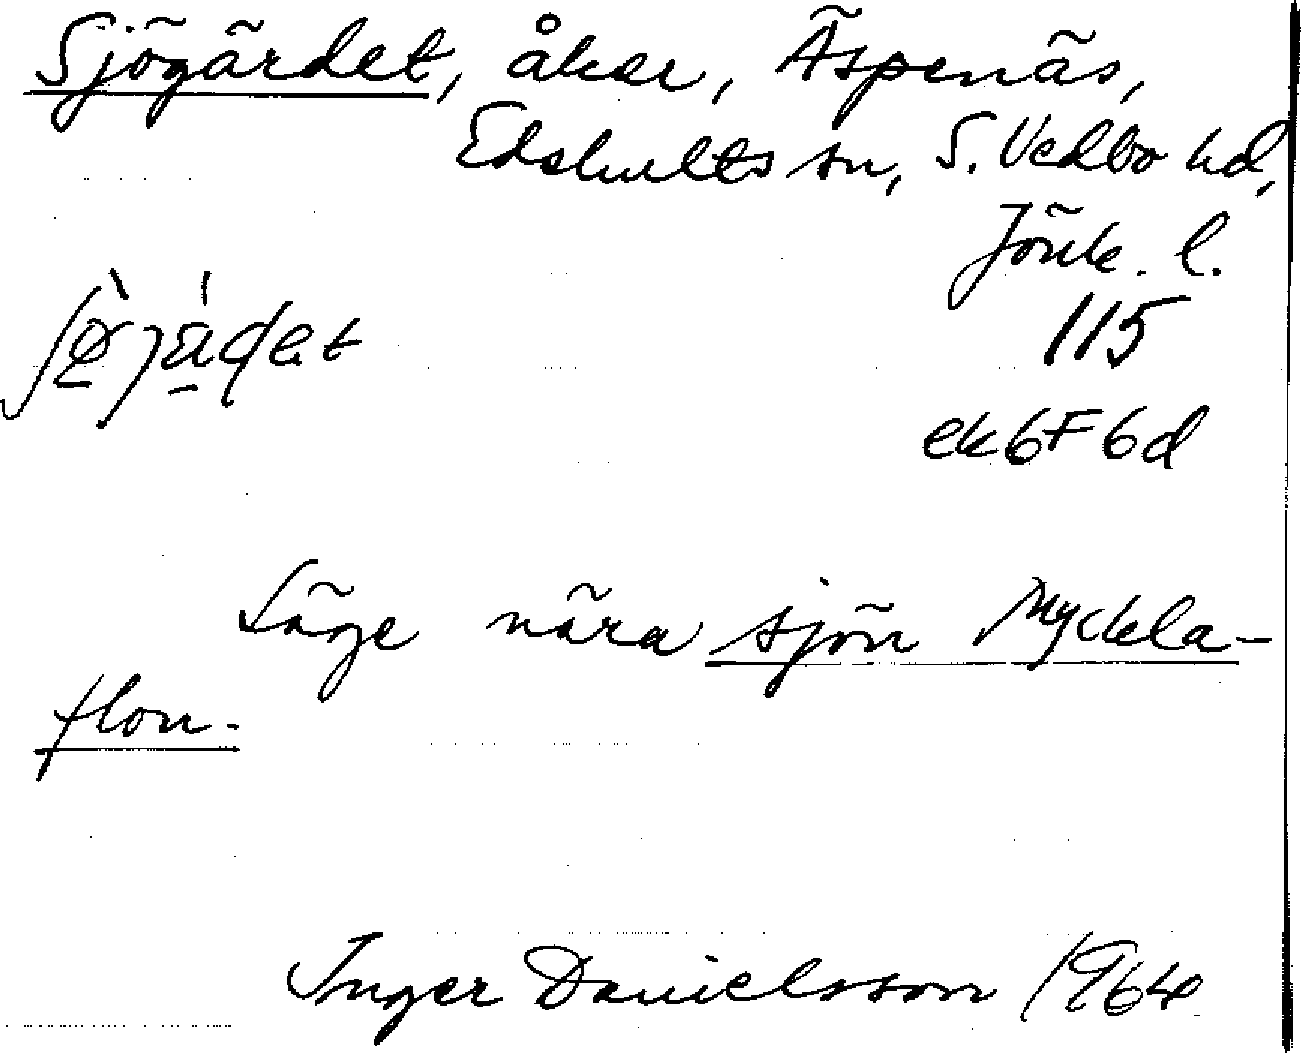 Sjögärdet, åker, Äspenäs,
Edshults sn, S. Vedbo hd,
Jönk. l.
115
ek6F6d
Läge nära sjön Myckla-
flon.
Inger Danielsson 1964